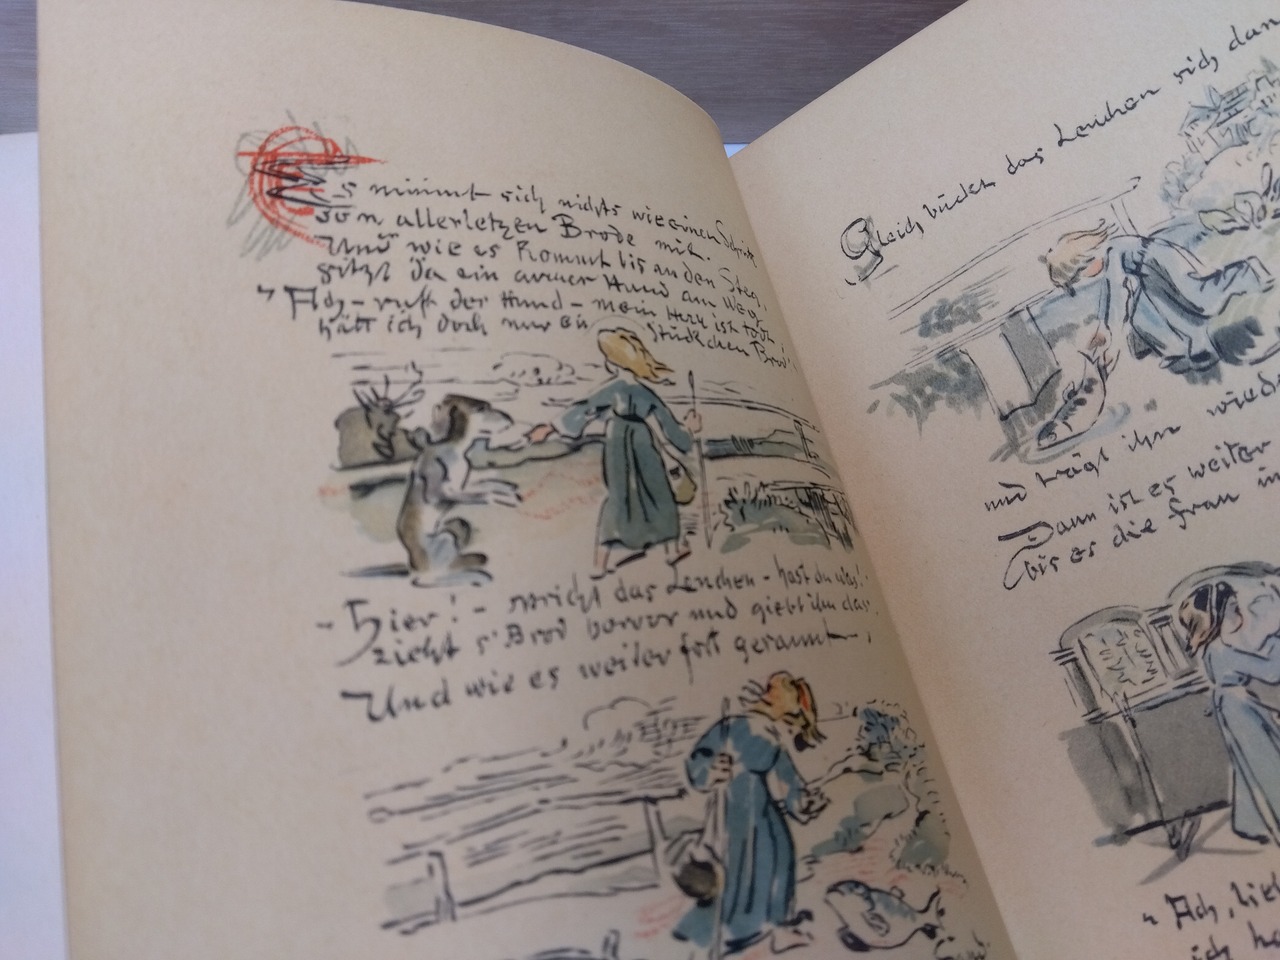 Es nimmt sich nichts wie einen Schritt
von allerletzen Brode mit.
Und wie es kommt bis an den Steg,
sitzt da ein armer Hund am Weg
"Ach - ruft der Hund - mein Herz ist tot,
hätt ich doch nur ein Stückchen Brod!
- Hier! - spricht das Lenchen - hast du was! -
zieht s' Brod hervor und giebt ihm das.
Und wie es weiter fort gerannt -,
Gleich bückt das Lenchen sich dan
und trägt ihn wied
Dann ist es weiter
bis es die Frau in
"Ach, lie
ich ha